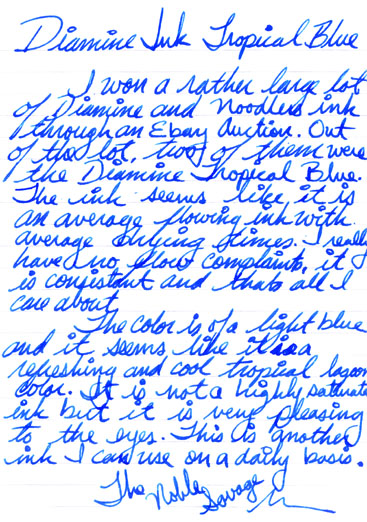 Diamine Ink Tropical Blue
I won a rather large lot
of Diamine and Noodlers ink
through an Ebay Auction. Out
of the lot, two of them were
the Diamine Tropical Blue.
The ink seems like it is
an average flowing ink with
average drying times. I really
have no flow complaints, it
is consistant and thats all I
care about
The color is of a light blue
and it seems like it is a
refreshing and cool tropical lagoon
color. It is not a highly saturate
ink but it is very pleasing
to the eyes. This is another
ink I can use on a daily basis.
The Noble Savage